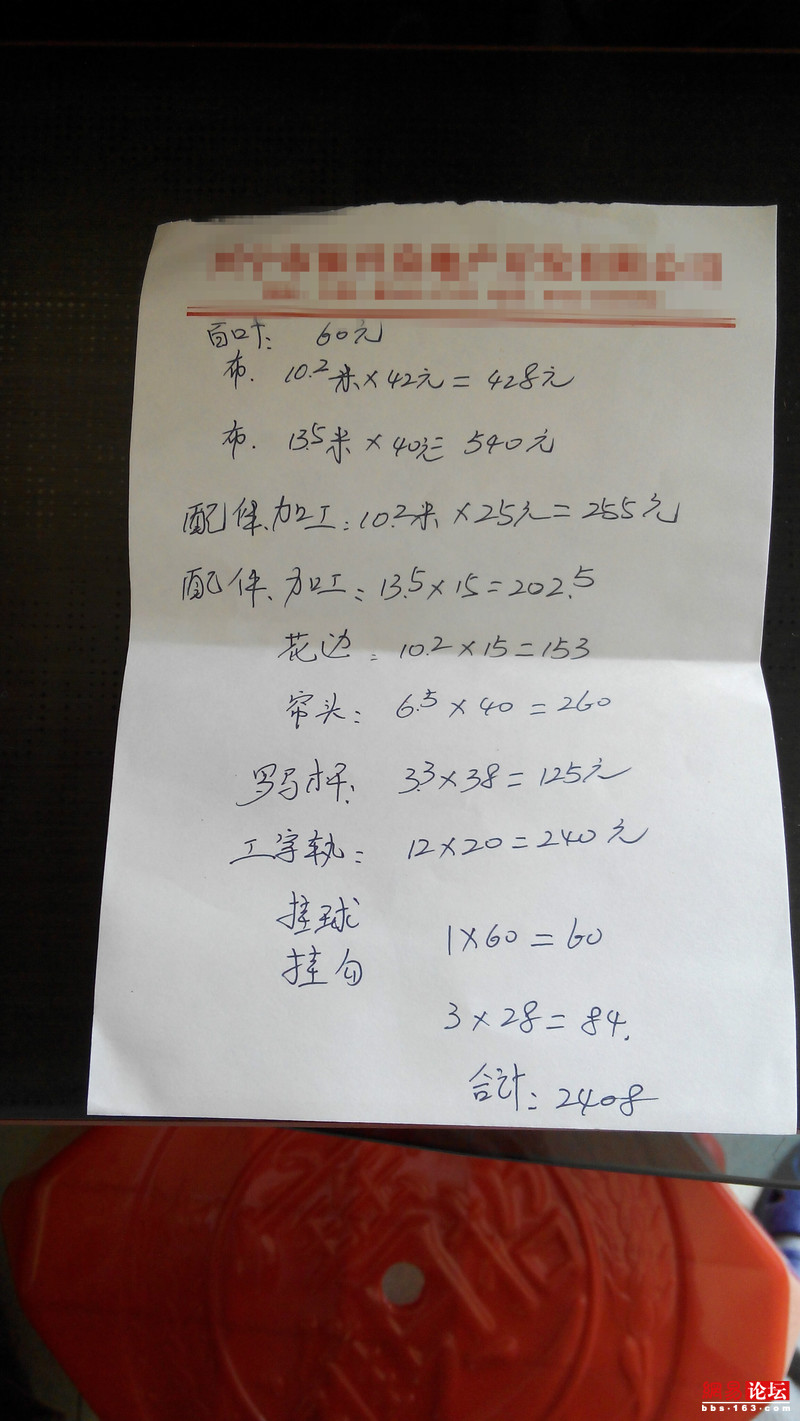 百叶: 60元
布. 10.2米×42元=428元
布. 13.5米×40元=540元
配件.加工:10.2米×25元=255元
配件.加工:13.5×15=202.5
花边: 10.2×15=153
帘头: 6.5×40=260
罗马杆: 3.3×38=125元
工字轨: 12×20=240元
挂球
1×60=60
挂勾
3×28=84.
合计:2408
论坛
bbs.163.com